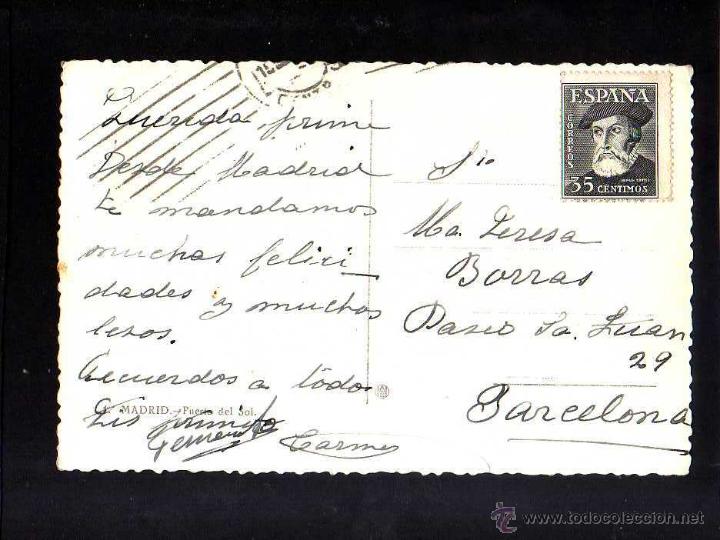 Querida prima
Desde Madrid
te mandamos
muchas felici
dades y muchos
besos.
Recuerdos a todos
MADRID.-Puerta del Sol.
Tus primos
Carmen
ESPAÑA
CORREOS
35 CENTIMOS
Ma. Teresa
Borras
Paseo Sn. Juan
29
Barcelona
www.todocoleccion.net